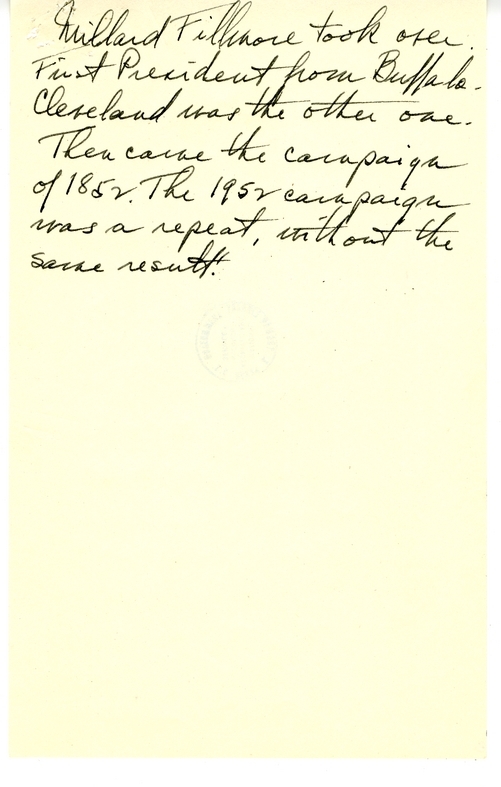 Millard Fillmore took over.
First President from Buffalo.
Cleveland was the other one.
Then came the campaign
of 1852. The 1952 campaign
was a repeat, without the
same result!